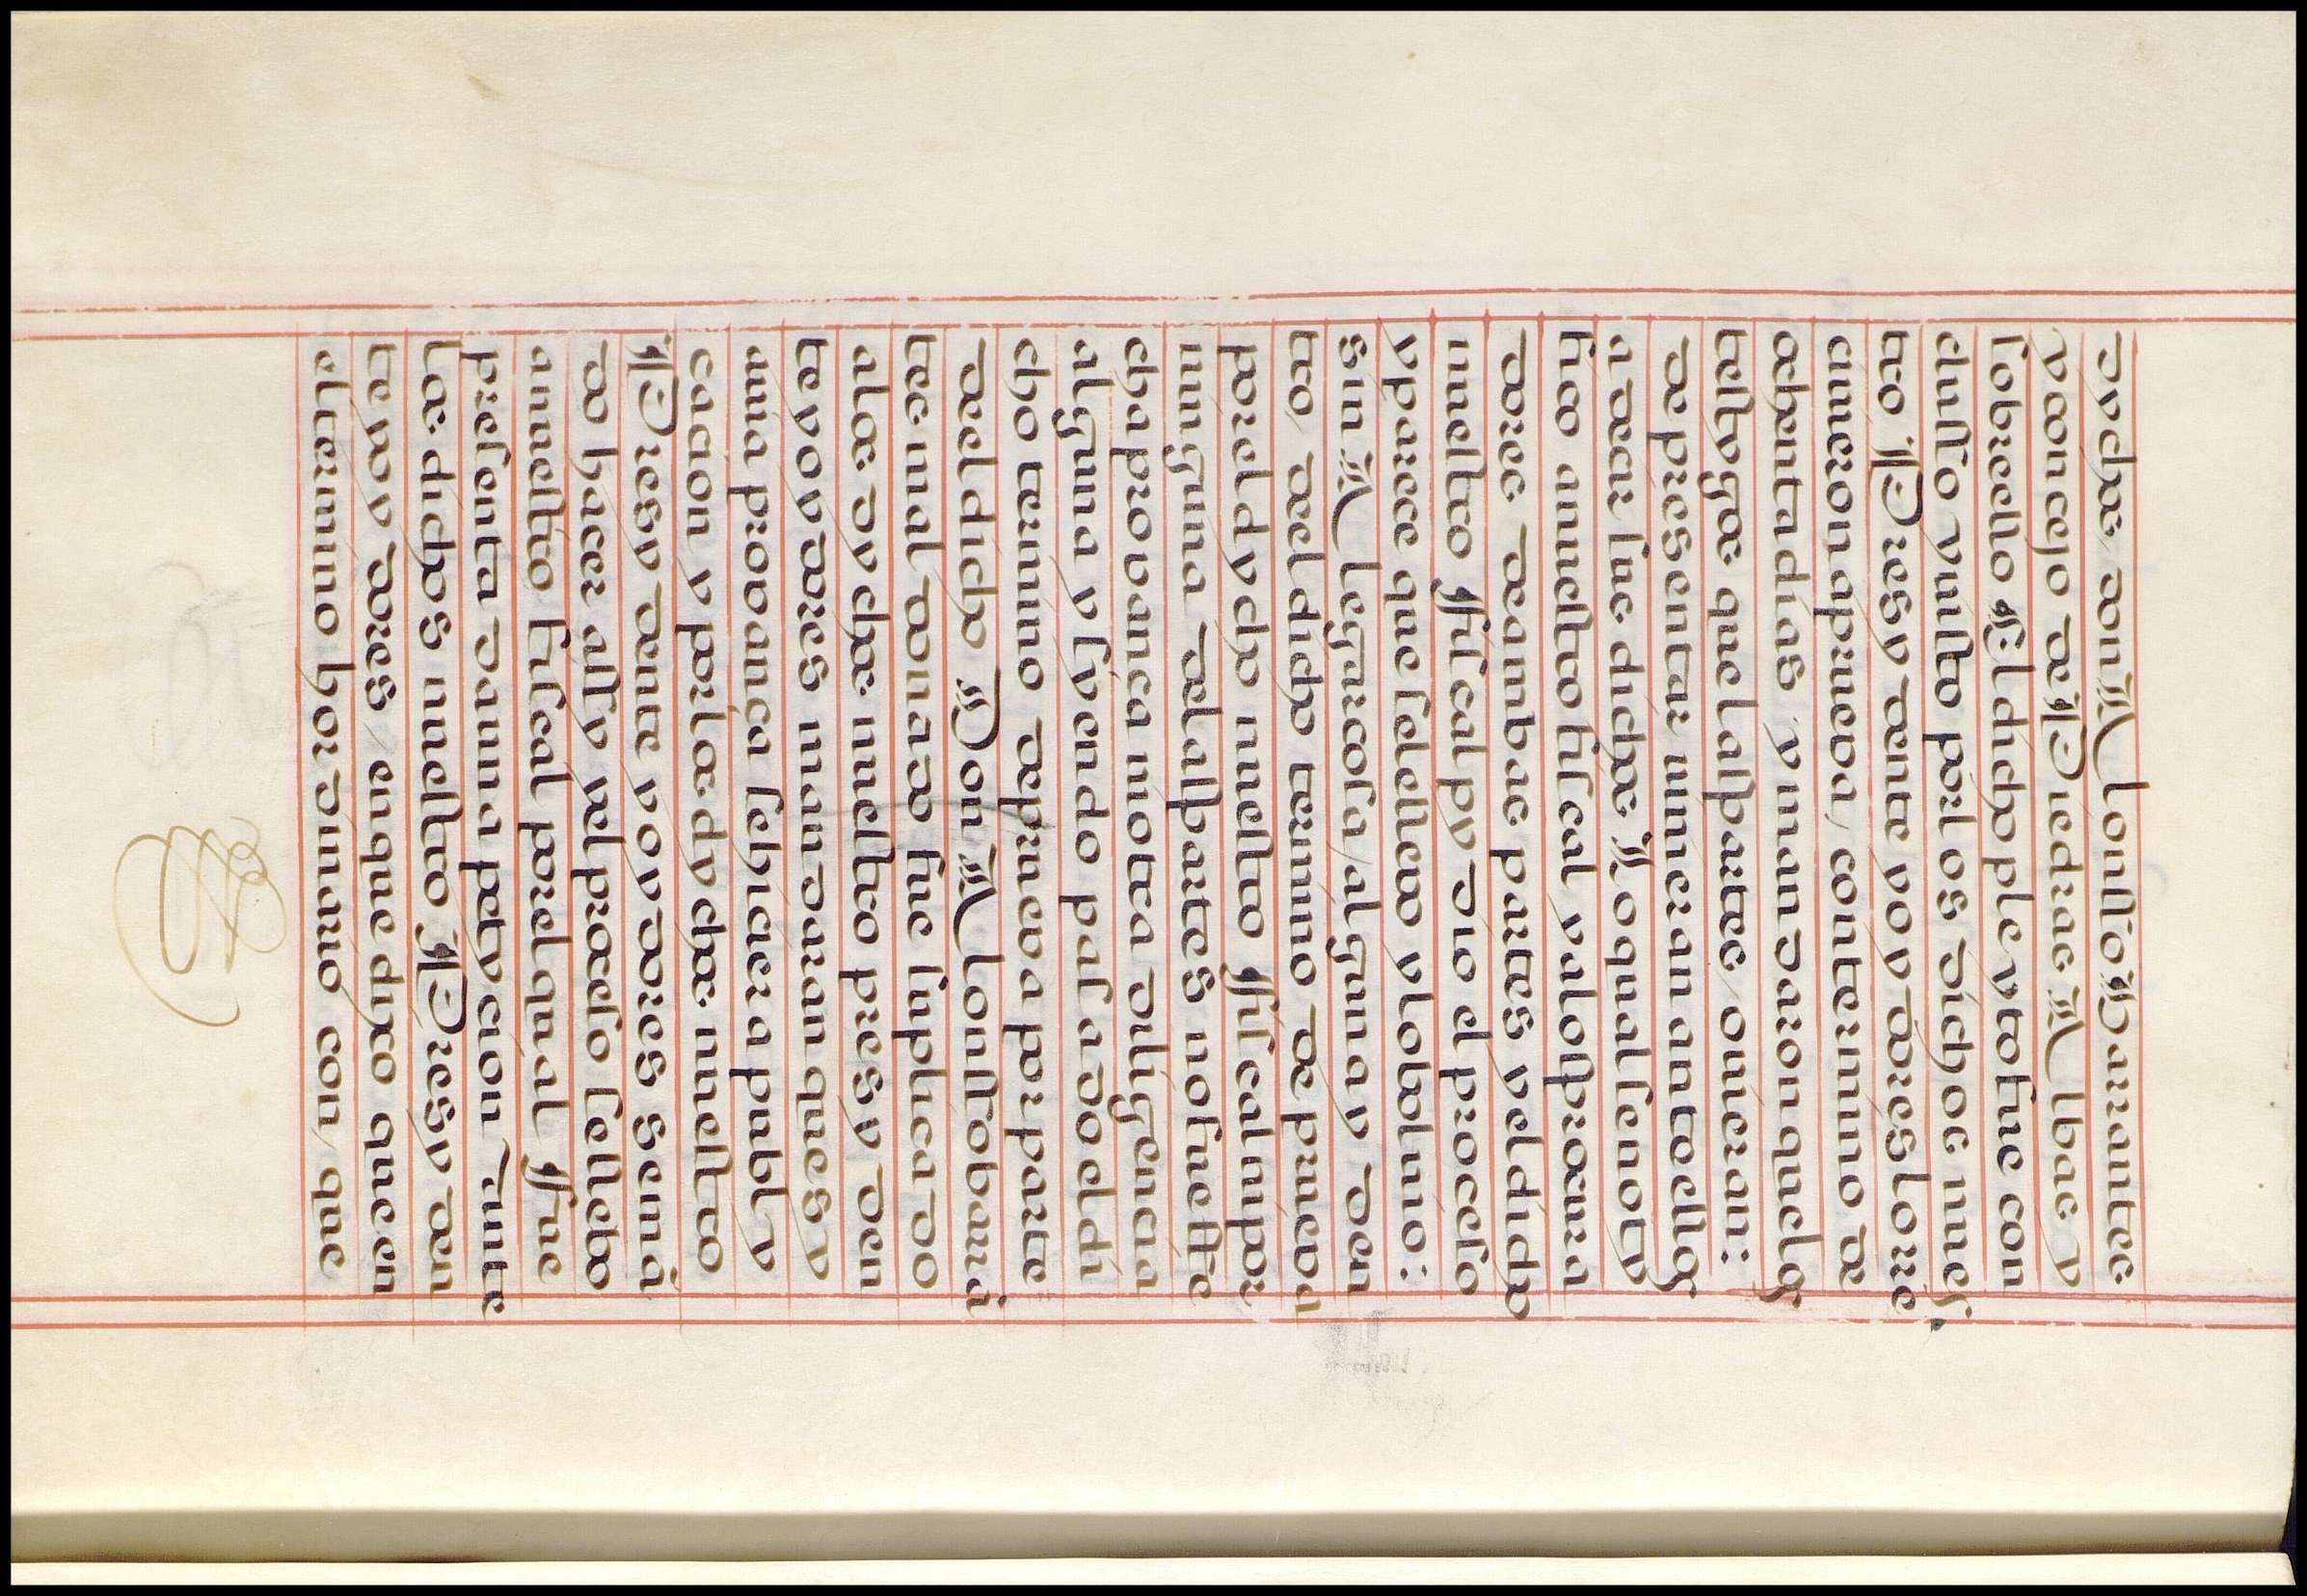 dydho don Alonsso Barrantes
y conçejo de Piedrae Albae y
sobreello El dicho pleyto fue con
clusso y uisto por los dichos nues
tro Presydente y oydores lo rre
ciuieron aprueva, con termino de
ochenta dias y mandaron quelos
testygos que las partes, omieran:
de presentar uinieran antellos
a decir sus dichos Lo qual se noty
fico anuestro fiscal y alos procura
dores de ambas partes y el dicho
nuestro Fiscal pydio el proceso
y parece que se le llevo y lo boluio:
sin Alegar cosa, alguna y den
tro del dicho termino de prueva
por el dycho nuestro Fiscal ni por
ninguna de las partes no fue ffe
cha provanca ni otra diligencia
alguna y syendo pasado el di
cho termino de prueva por parte
del dicho Don Alonsso barra
tes mal donado fue suplicado
alos dychos nuestro presyden
te y oydores mandaran que su
ama provança se hiciera publy
cacion y por los dychos nuestro
Presydente y oydores se ma
do hacer assy y el proceso se llebo
a nuestro fiscal por el qual Fue
presenta da una petycion Ante
los dichos nuestro Presyden
te, y oydores, en que dixo que en
el termino hordinario con, que